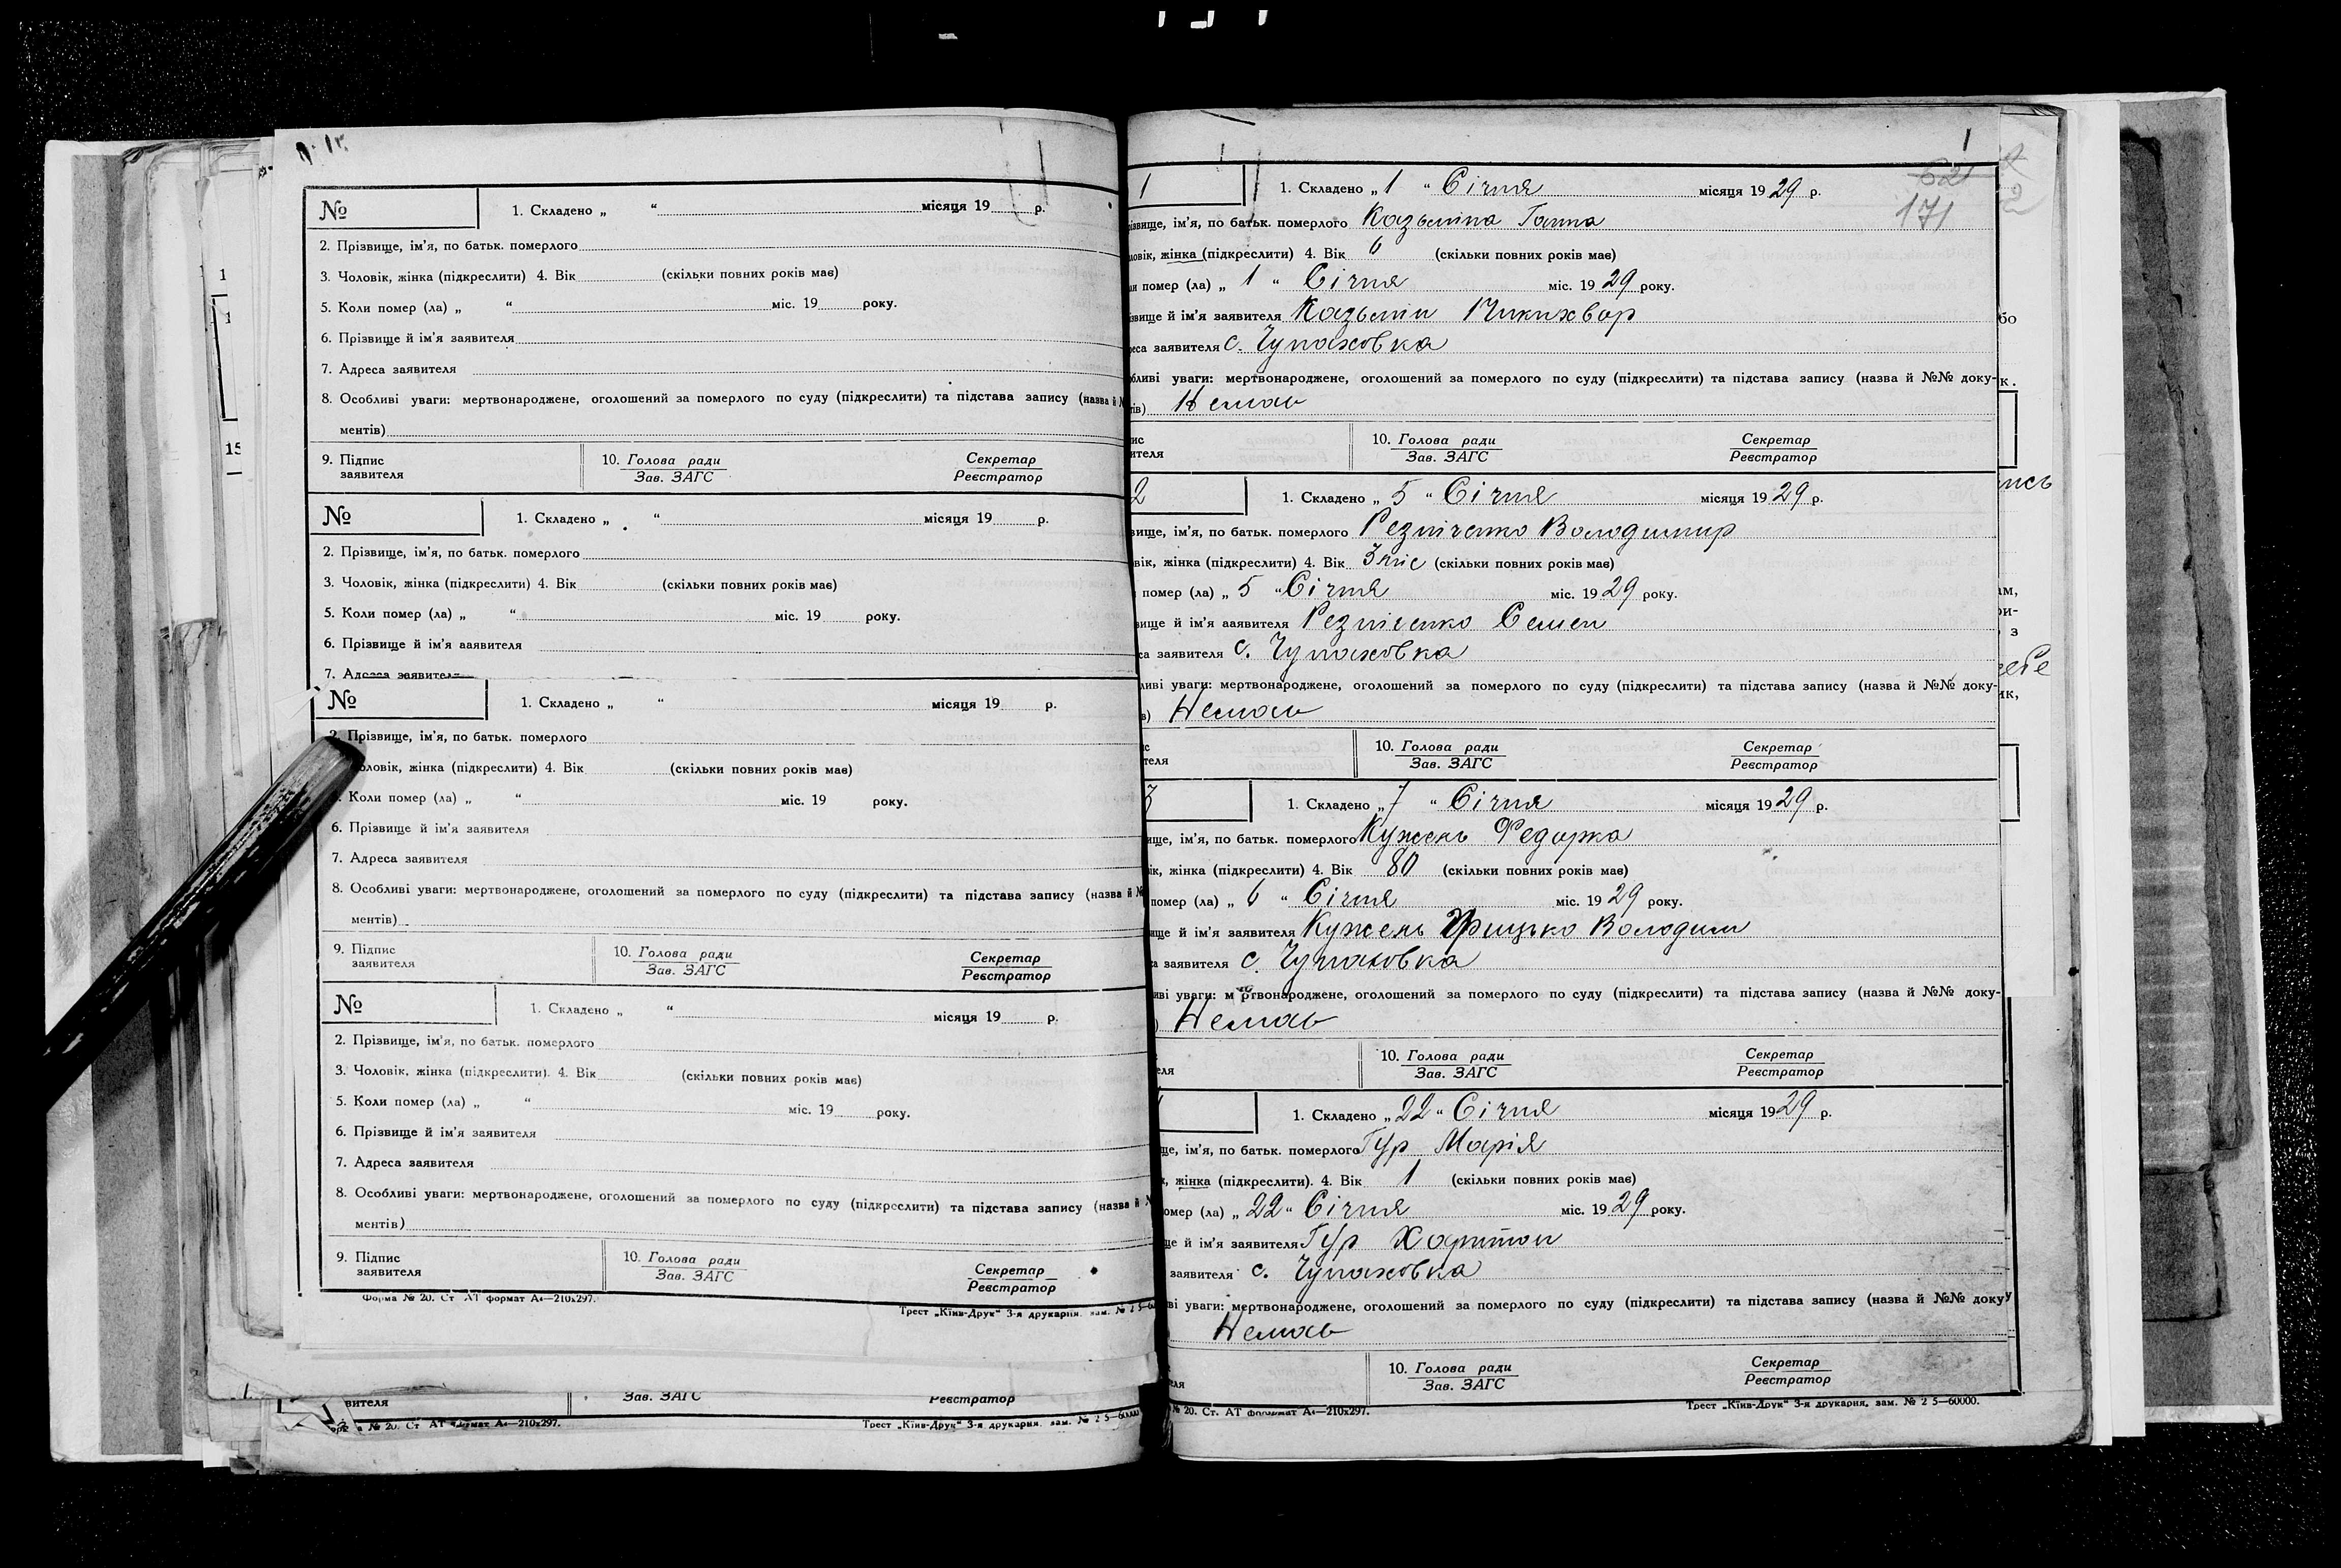 №
1. Складено „ “ місяця 19 р.
2. Прізвище, ім'я, по батьк. померлого
3. Чоловік, жінка (підкреслити) 4. Вік (скільки повних років має)
5. Коли помер (ла) „ “ міс. 19 року.
6. Прізвище й ім'я заявителя
7. Адреса заявителя
8. Особливі уваги: мертвонароджене, оголошений за померлого по суду (підкреслити) та підстава запису (назва й
ментів)
9. Підпис заявителя 10. Голова ради Секретар
Зав. ЗАГС Реєстратор
№
1. Складено „ “ місяця 19 р.
2. Прізвище, ім'я, по батьк. померлого
3. Чоловік, жінка (підкреслити) 4. Вік (скільки повних років має)
5. Коли помер (ла) „ “ міс. 19 року.
6. Прізвище й ім'я ааявителя
7. Адреса заявителя
№
1. Складено „ “ місяця 19 р.
2. Прізвище, ім'я, по батьк. померлого
оловік, жінка (підкреслити) 4. Вік (скільки повних років має)
Коли помер (ла) „ “ міс. 19 року.
6. Прізвище й ім'я заявителя
7. Адреса заявителя
8. Особливі уваги: мертвонароджене, оголошений за померлого по суду (підкреслити) та підстава запису (назва й
ментів)
9. Підпис заявителя 10. Голова ради Секретар
Зав. ЗАГС Реєстратор
№
1. Складено „ “ місяця 19 р.
2. Прізвище, ім'я, по батьк. померлого
3. Чоловік, жінка (підкреслити). 4. Вік (скільки повних років має)
5. Коли помер (ла) „ “ міс. 19 року.
6. Прізвище й ім'я заявителя
7. Адреса заявителя
8. Особливі уваги: мертвонароджене, оголошений за померлого по суду (підкреслити) та підстава запису (назва й
ментів)
9. Підпис заявителя 10. Голова ради Секретар
Зав. ЗАГС Реєстратор
Форма № 20. Ст АТ формат А4—210х297. Трест „Київ-Друк“ 3-я друкарня. зам. №
вителя Зав. ЗАГС Реєстратор
№ 20. Ст АТ формат А4—210х297. Трест „Київ-Друк“ 3-я друкарня. зам. № 2 5—60000
1
1 1. Складено „1“ Січня місяця 1929 р.
171
ізвище, ім'я, по батьк. померлого Казьміна Ганна
ловік, жінка (підкреслити) 4. Вік 6 (скільки повних років має)
помер (ла) „1“ Січня міс. 1929 року.
звище й ім'я заявителя Казьмин Микихвор
еса заявителя с. Чупаховка
бливі уваги: мертвонароджене, оголошений за померлого по суду (підкреслити) та підстава запису (назва й №№ доку-
тів) Немає
ис ителя 10. Голова ради Секретар
Зав. ЗАГС Реєстратор
2 1. Складено „5“ Січня місяця 1929 р.
вище, ім'я, по батьк. померлого Резніченко Володимир
вік, жінка (підкреслити) 4. Вік 3 міс (скільки повних років має)
помер (ла) „5“ Січня міс. 1929 року.
вище й ім'я ааявителя Резніченко Семен
са заявителя с. Чупаховка
ливі уваги: мертвонароджене, оголошений за померлого по суду (підкреслити) та підстава запису (назва й №№ доку-
в) Немає
с теля 10. Голова ради Секретар
Зав. ЗАГС Реєстратор
3 1. Складено „7“ Січня місяця 1929 р.
ище, ім'я, по батьк. померлого Кужель Федорка
ік, жінка (підкреслити) 4. Вік 80 (скільки повних років має)
помер (ла) „6“ Січня міс. 1929 року.
ище й ім'я заявителя Кужель Грицько Володим
а заявителя с. Чупаховка
иві уваги: мертвонароджене, оголошений за померлого по суду (підкреслити) та підстава запису (назва й №№ доку-
) Немає
еля 10. Голова ради Секретар
Зав. ЗАГС Реєстратор
1. Складено „22“ Січня місяця 1929 р.
ще, ім'я, по батьк. померлого Гур Марія
, жінка (підкреслити). 4. Вік 1 (скільки повних років має)
омер (ла) „22“ Січня міс. 1929 року.
ще й ім'я заявителя Гур Харитон
заявителя с. Чупаховка
ві уваги: мертвонароджене, оголошений за померлого по суду (підкреслити) та підстава запису (назва й №№ доку
Немає
еля 10. Голова ради Секретар
Зав. ЗАГС Реєстратор
№ 20. Ст. АТ формат А4—210х297. Трест „Київ-Друк“ 3-я друкарня, зам. № 2 5—60000.